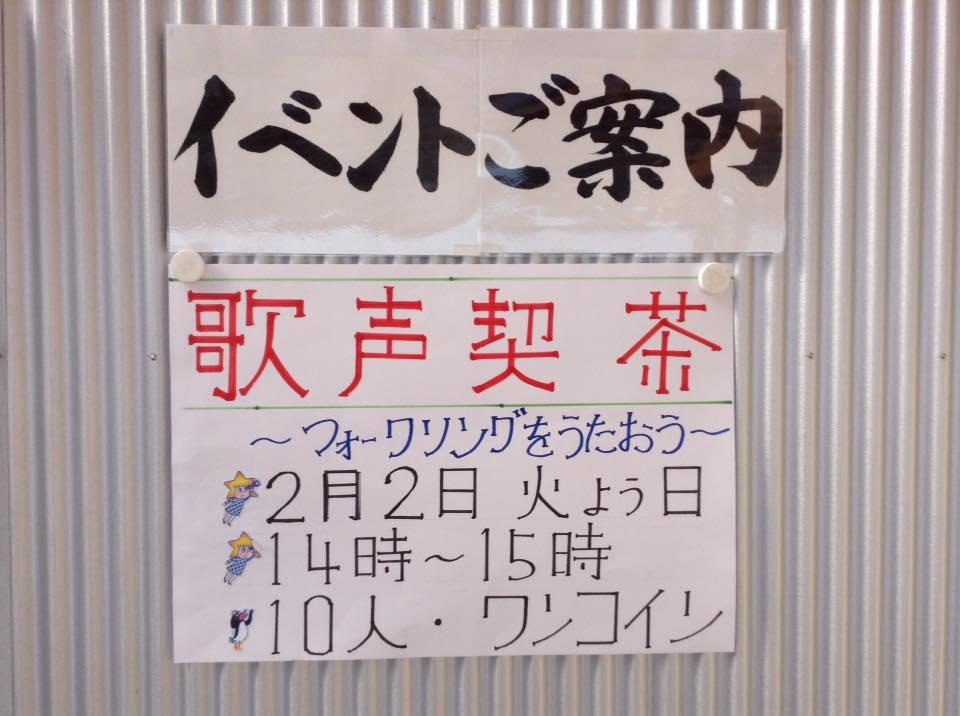 イベントご案内
歌声契茶
～フォークソングをうたおう～
2月2日 火よう日
14時～15時
10人・ワンコイン